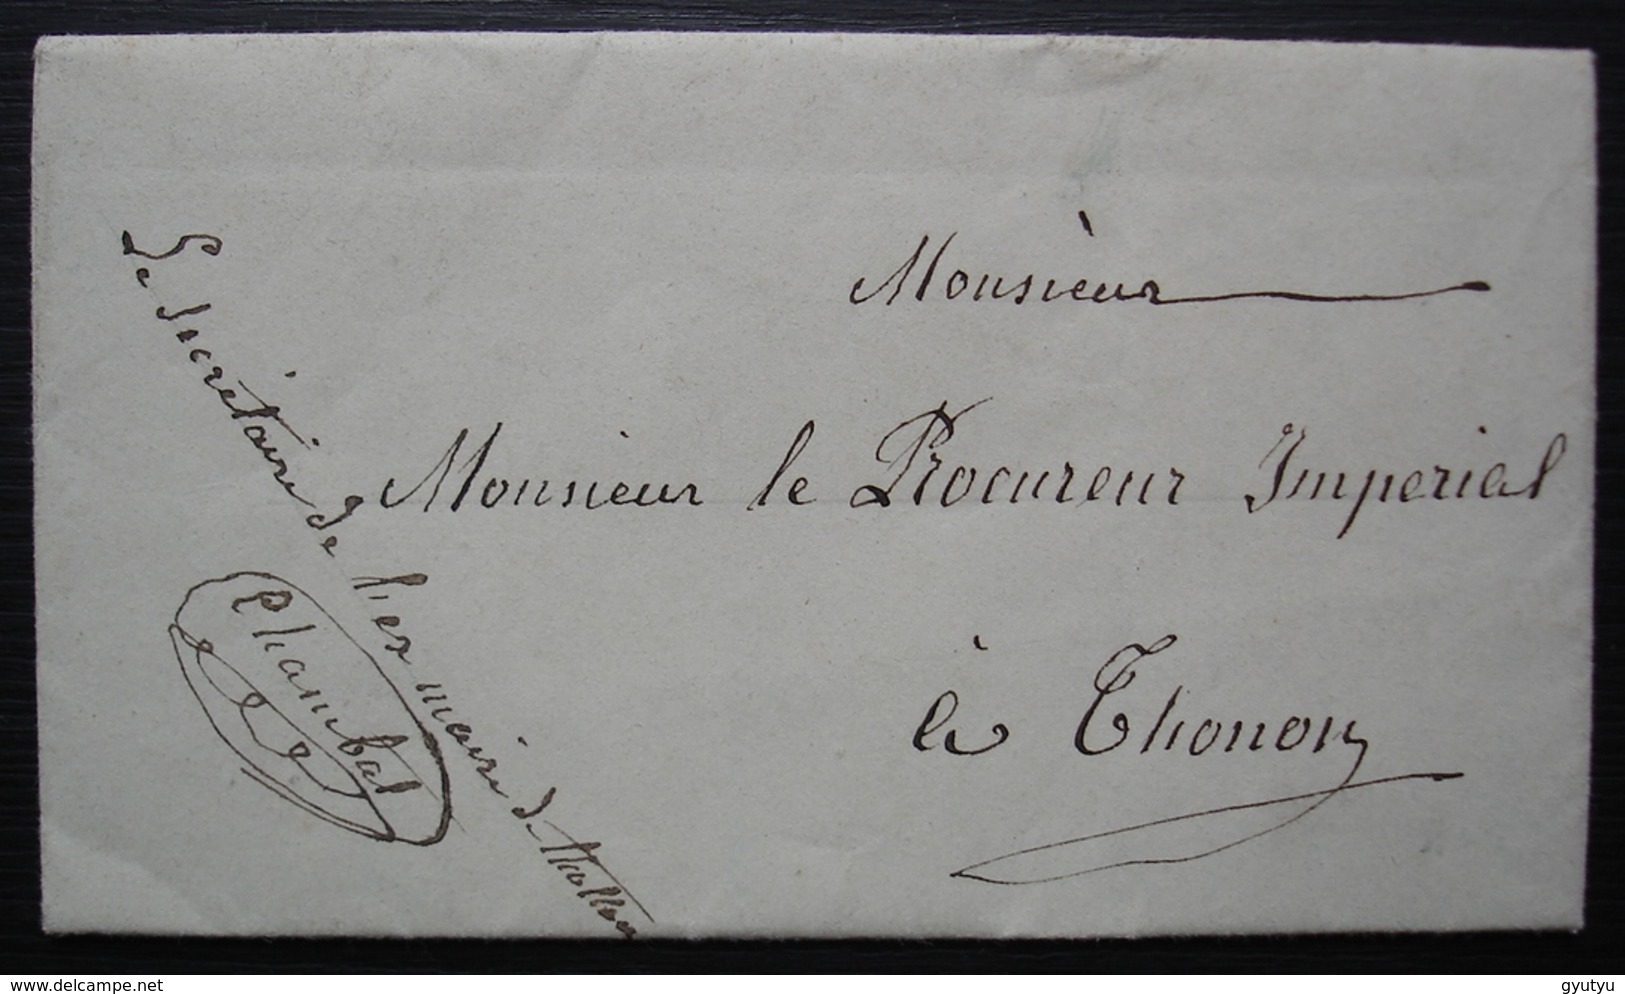 Monsieur
Monsieur le Procureur Imperial
à Thonon
Le secrétaire de
mairie de
Chambat
delcampe.net
gyutyu